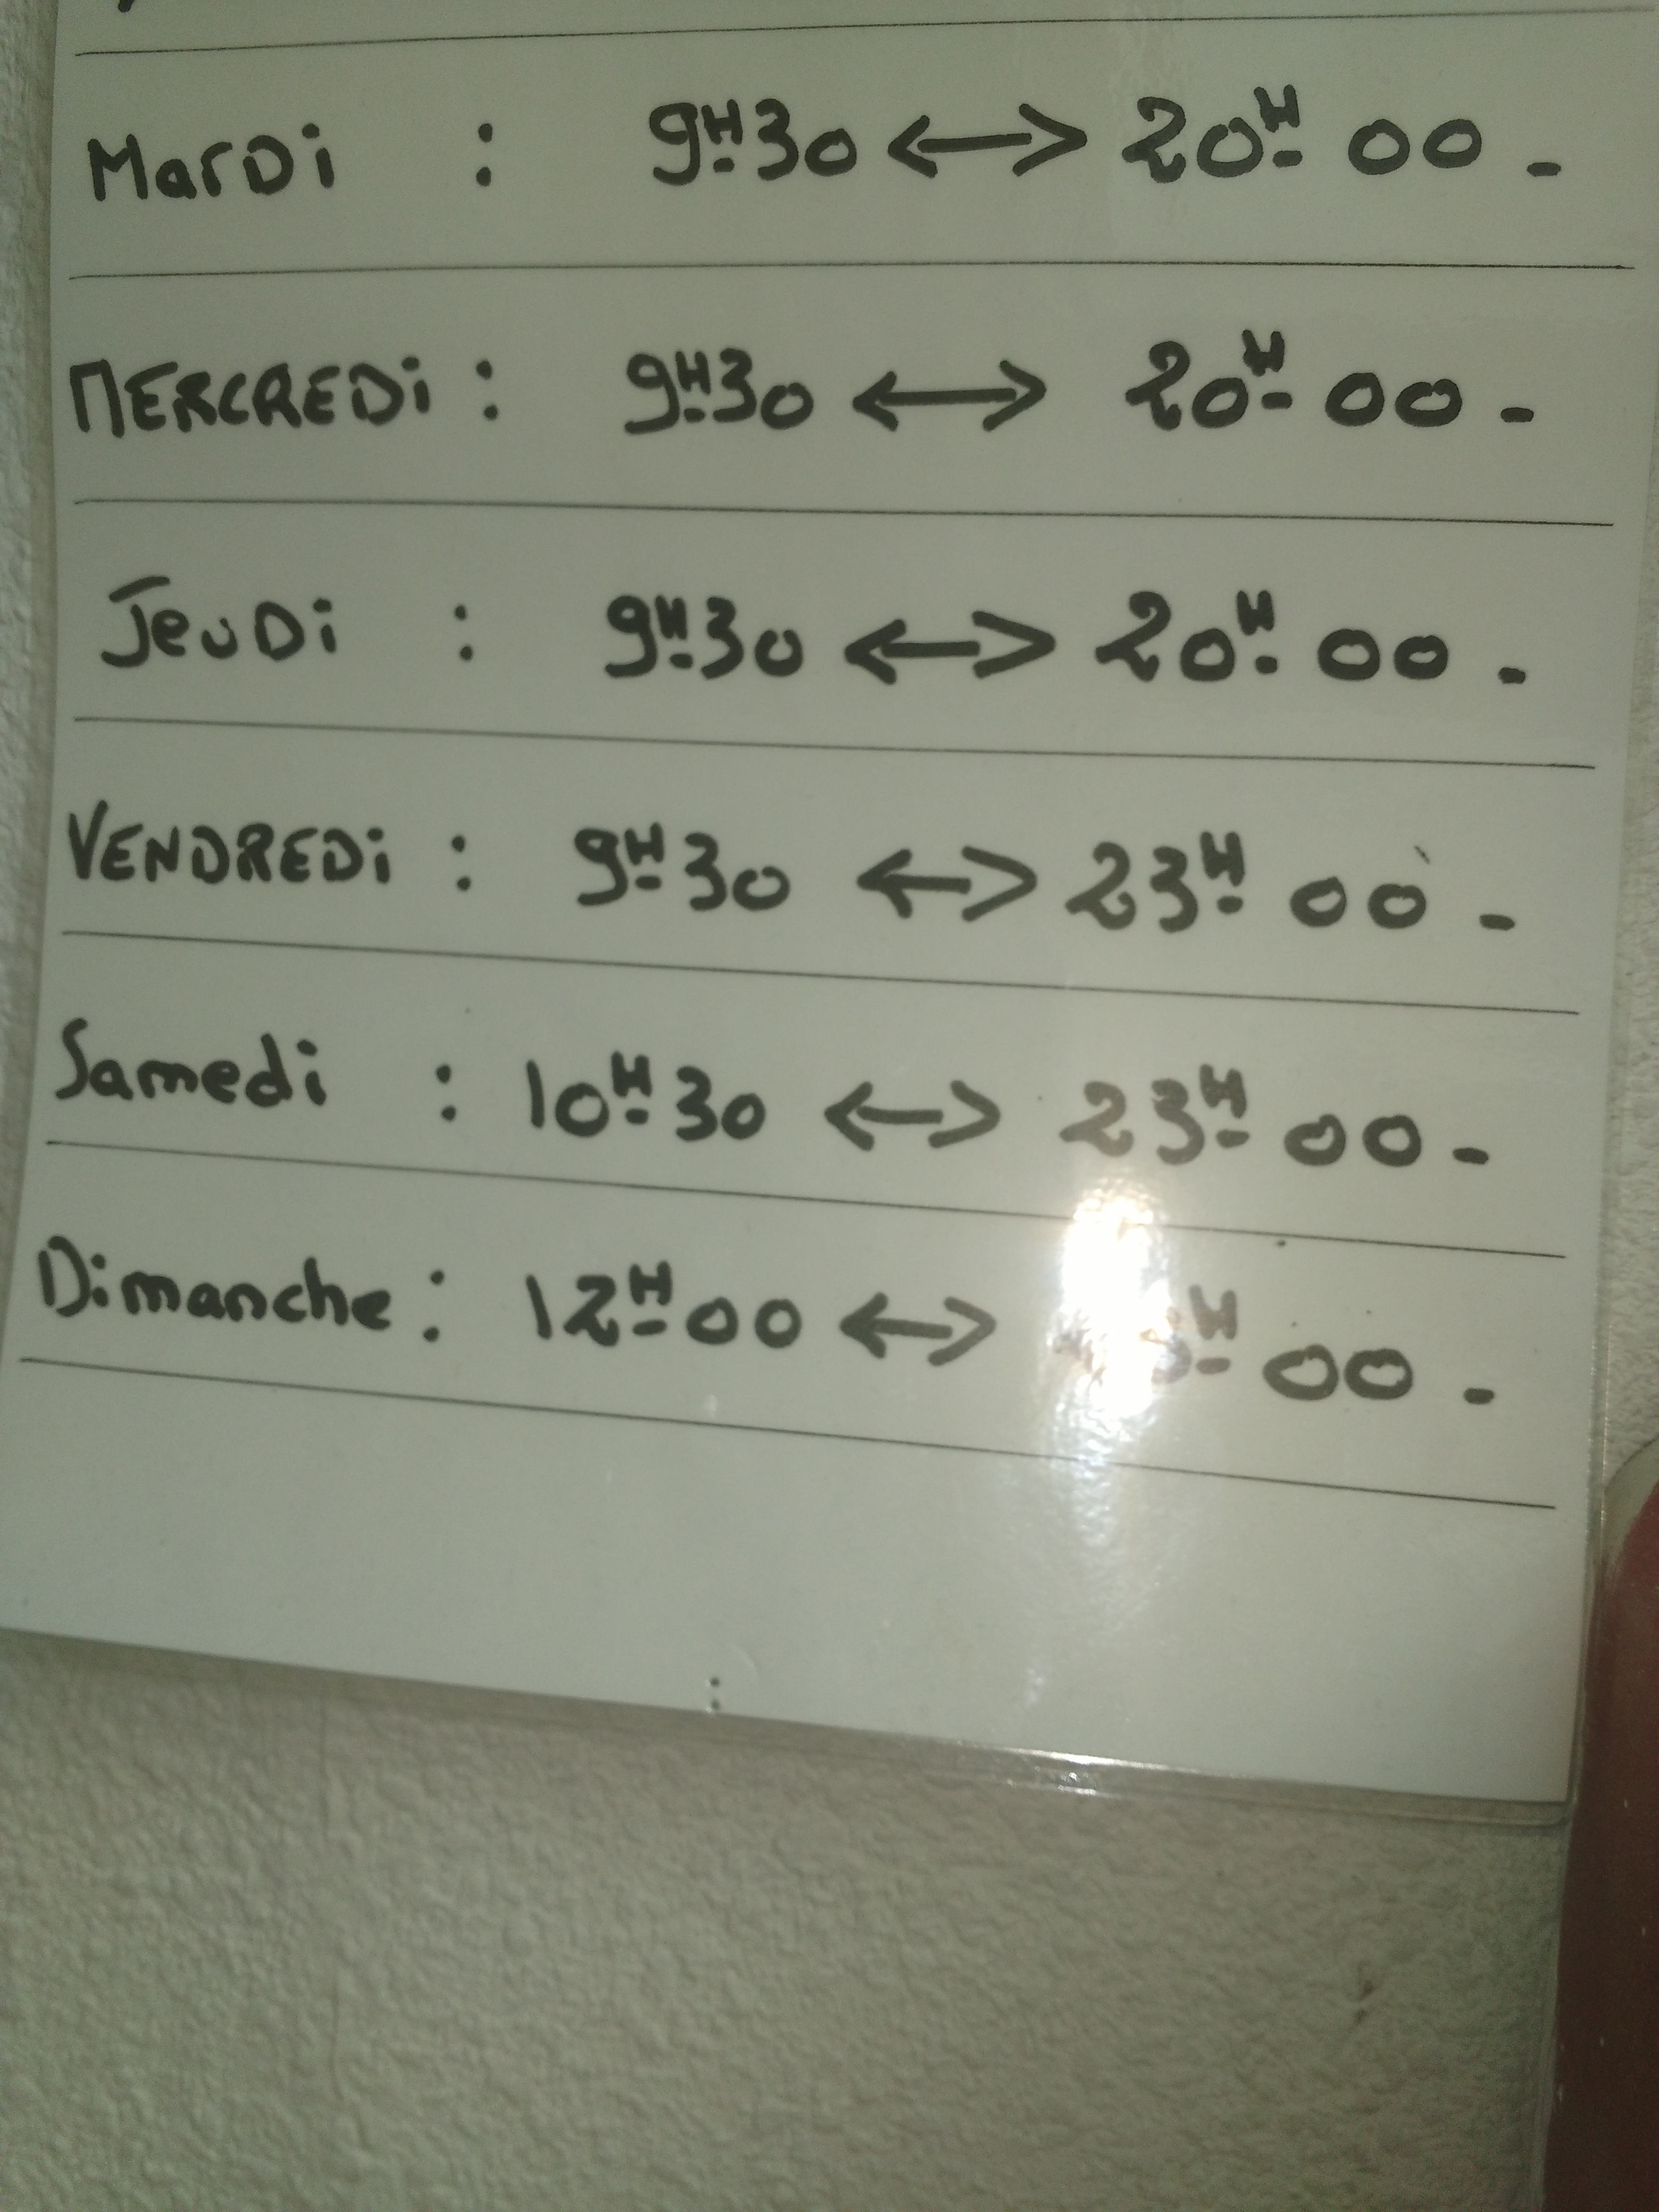 Mardi : 9H30 <-> 20H 00 -
MERCREDi : 9H30 <-> 20H 00 -
JeuDi : 9H30 <-> 20H 00 -
VENDREDi : 9H30 <-> 23H 00 -
Samedi : 10H30 <-> 23H 00 -
Dimanche : 12H00 <-> H 00 -